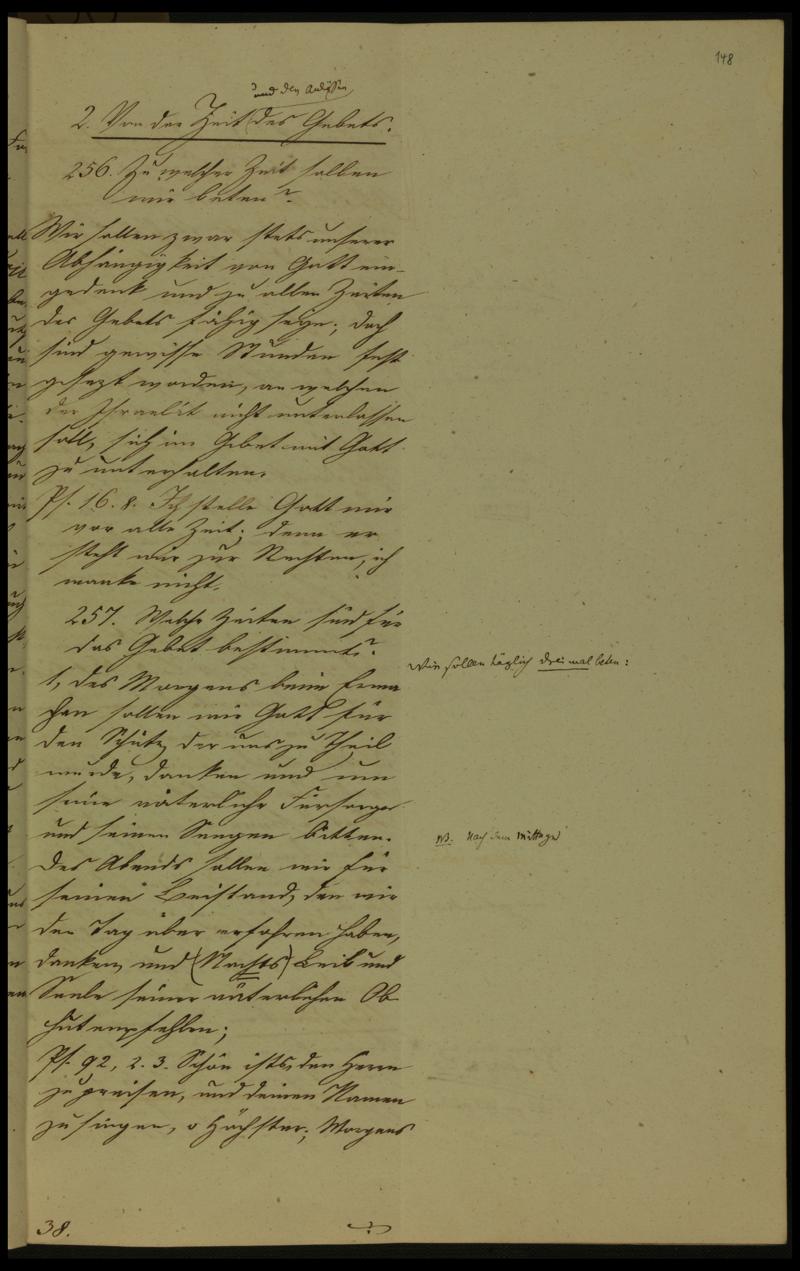 148
und den Anlässen
2. Von der Zeit (des Gebets.
256. Zu welcher Zeit sollen
wir beten?
Wir sollen zwar stets unserer
Abhängigkeit von Gott ein-
gedenk und zu allen Zeiten
des Gebets fähig seyn; doch
sind gewisse Stunden fest
gesezt worden, an welchen
der Israelit nicht unterlassen
soll, sich im Gebet mit Gott
zu unterhalten.
Ps. 16. 8. Ich stelle Gott mir
vor alle Zeit; denn er
steht mir zur Rechten, ich
wanke nicht.
257. Welche Zeiten sind für
das Gebet bestimmt?
Wir sollen täglich dreimal beten:
1, des Morgens beim Erwa
chen sollen wir Gott für
den Schutz, der uns zu Theil
wurde, danken und um
seine väterliche Fürsorge
und seinen Seegen bitten.
NB. Nach dem Mittage
Des Abends sollen wir für
seinen Beistand, den wir
den Tag über erfahren haben,
danken, und (Nachts) Leib und
Seele seiner väterlichen Ob-
hut empfehlen;
Ps. 92, 2. 3. Schön ists, den Herrn
zu preisen, und deinen Namen
zu singen, o Höchster; Morgens
38.